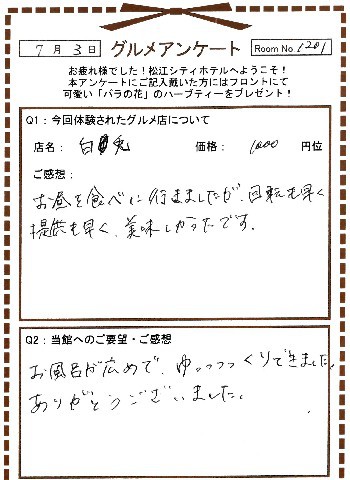 7月3日 グルメアンケート Room No.1201
お疲れ様でした！松江シティホテルへようこそ！
本アンケートにご記入戴いた方にはフロントにて
可愛い「バラの花」のハーブティーをプレゼント！
Q1：今回体験されたグルメ店について
店名： 白兎 価格： 1000 円位
ご感想：
お昼を食べに行きましたが、回転も早く
提供も早く、美味しかったです。
Q2：当館へのご要望・ご感想
お風呂が広めで、ゆっっっっくりできました。
ありがとうございました。